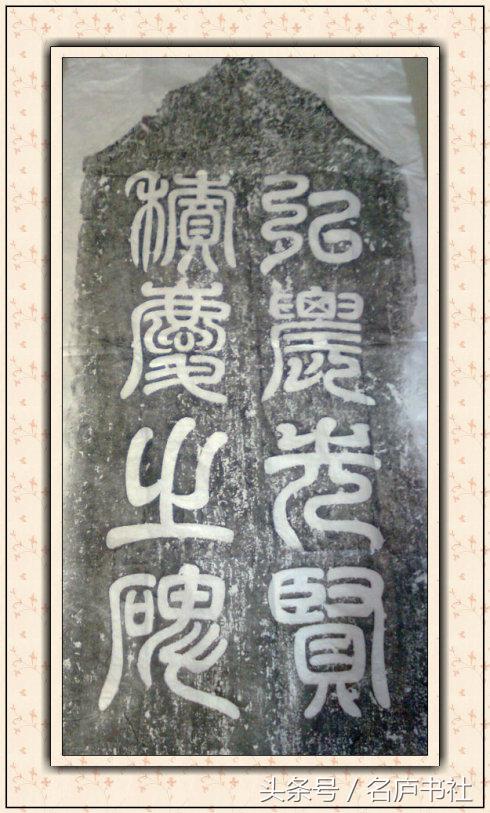 弘農先賢
積慶之碑
头条号 / 名庐书社